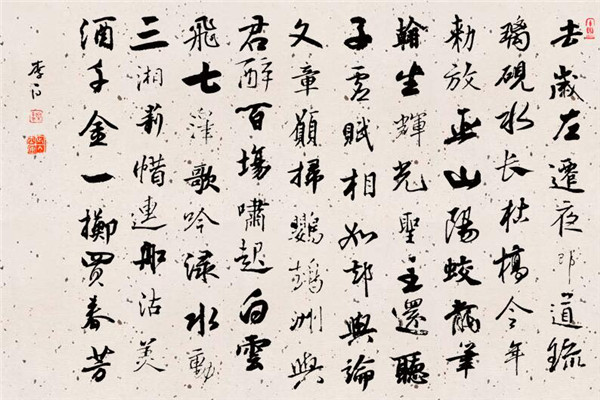 去歲左遷夜郎道琉
璃硯水长枯槁今年
敕放巫山陽蛟龍筆
翰生輝光聖主還聽
子虛賦相如却與論
文章願掃鸚鵡洲與
君醉百場嘯起白雲
飛七澤歌吟渌水動
三湘莫惜連船沽美
酒千金一擲買春芳
李